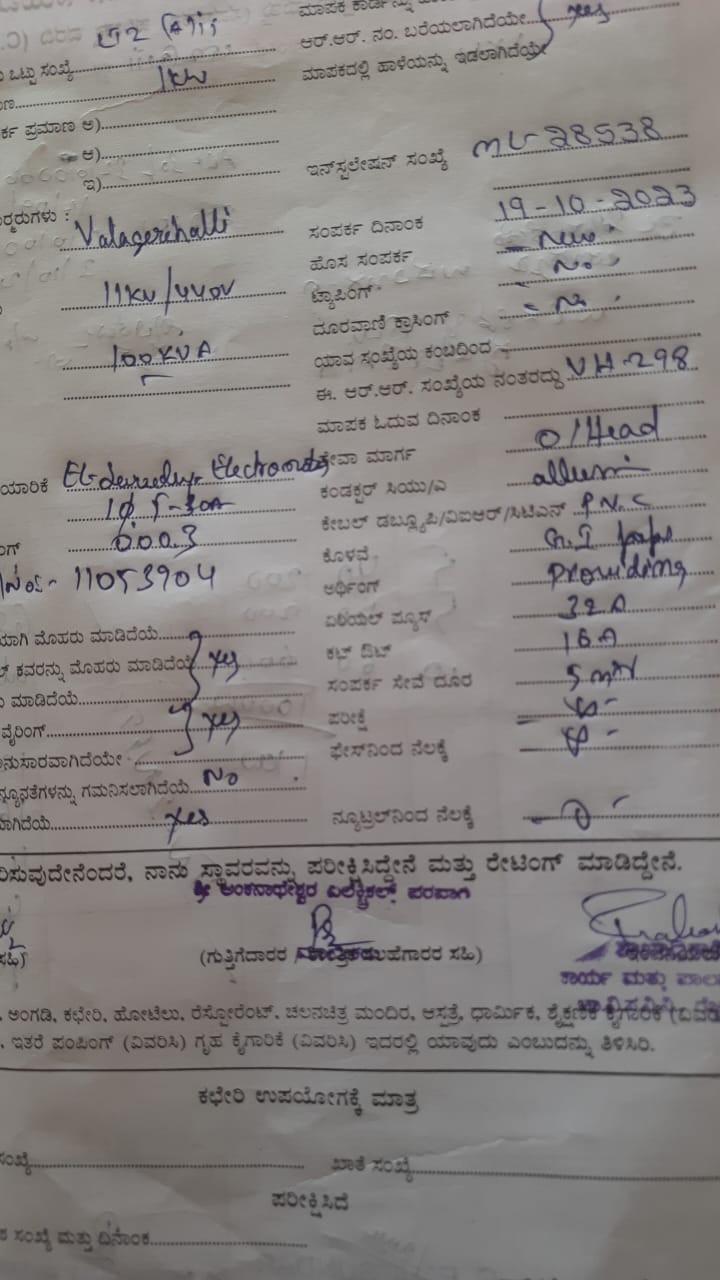 ಮಾಪಕ ಕಾರ್ಡನ್ನು
LT2 (A)ii ಆರ್.ಆರ್. ನಂ. ಬರೆಯಲಾಗಿದೆಯೇ Yes
ಒಟ್ಟು ಸಂಖ್ಯೆ 1KW ಮಾಪಕದಲ್ಲಿ ಹಾಳೆಯನ್ನು ಇಡಲಾಗಿದೆಯೇ
ಪ್ರಮಾಣ ಅ)
ಆ)
ಇ) ಇನ್‌ಸ್ಟಲೇಷನ್ ಸಂಖ್ಯೆ ML-28538
Valagerehalli ಸಂಪರ್ಕ ದಿನಾಂಕ 19-10-2023
ಹೊಸ ಸಂಪರ್ಕ New
11KV/440V ಟ್ಯಾಪಿಂಗ್ No
ದೂರವಾಣಿ ಕ್ರಾಸಿಂಗ್ No
100KVA ಯಾವ ಸಂಖ್ಯೆಯ ಕಂಬದಿಂದ
ಈ. ಆರ್.ಆರ್. ಸಂಖ್ಯೆಯ ನಂತರದ್ದು VH-298
ಮಾಪಕ ಓದುವ ದಿನಾಂಕ
ಸೇವಾ ಮಾರ್ಗ O/Head
1φ 5-30A ಕಂಡಕ್ಟರ್ ಸಿಯು/ಎ
000.3 ಕೇಬಲ್ ಡಬ್ಲ್ಯೂಪಿ/ವಿಐಆರ್/ಸಿಟಿಎಸ್ P.V.C
ಕೊಳವೆ G.I pipe
11053904 ಅರ್ಥಿಂಗ್ Providing
ಮೊಹರು ಮಾಡಿದೆಯೆ ಏರಿಯಲ್ ಫ್ಯೂಸ್ 32A
ಕವರನ್ನು ಮೊಹರು ಮಾಡಿದೆಯೆ Yes ಕಟ್ ಔಟ್ 16A
ಮಾಡಿದೆಯೆ ಸಂಪರ್ಕ ಸೇವೆ ದೂರ
ವೈರಿಂಗ್ Yes ಪರೀಕ್ಷೆ
ಅನುಸಾರವಾಗಿದೆಯೇ ಫೇಸ್‌ನಿಂದ ನೆಲಕ್ಕೆ
ನ್ಯೂನತೆಗಳನ್ನು ಗಮನಿಸಲಾಗಿದೆಯೆ No
Yes ನ್ಯೂಟ್ರಲ್‌ನಿಂದ ನೆಲಕ್ಕೆ
ನಾನು ಸ್ಥಾವರವನ್ನು ಪರೀಕ್ಷಿಸಿದ್ದೇನೆ ಮತ್ತು ರೇಟಿಂಗ್ ಮಾಡಿದ್ದೇನೆ.
ಶ್ರೀ ಅಂಕನಾಥೇಶ್ವರ ಎಲೆಕ್ಟ್ರಿಕಲ್ಸ್ ಪರವಾಗಿ
ಸಹಿ) (ಗುತ್ತಿಗೆದಾರರ
ಸಹಿ)
ಕಾರ್ಯ ಮತ್ತು
ಅಂಗಡಿ, ಕಛೇರಿ, ಹೋಟೆಲು, ರೆಸ್ಟೋರೆಂಟ್, ಚಲನಚಿತ್ರ ಮಂದಿರ, ಆಸ್ಪತ್ರೆ, ಧಾರ್ಮಿಕ, ಶೈಕ್ಷಣಿಕ ಕೈಗಾರಿಕೆ
ಇತರೆ ಪಂಪಿಂಗ್ (ವಿವರಿಸಿ) ಗೃಹ ಕೈಗಾರಿಕೆ (ವಿವರಿಸಿ) ಇದರಲ್ಲಿ ಯಾವುದು ಎಂಬುದನ್ನು ತಿಳಿಸಿರಿ.
ಕಛೇರಿ ಉಪಯೋಗಕ್ಕೆ ಮಾತ್ರ
ಸಂಖ್ಯೆ ಖಾತೆ ಸಂಖ್ಯೆ
ಪರೀಕ್ಷಿಸಿದೆ
ಸಂಖ್ಯೆ ಮತ್ತು ದಿನಾಂಕ